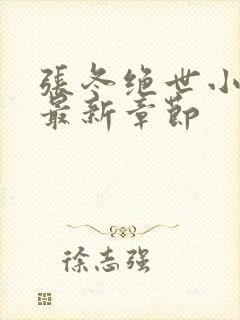 張冬绝世小
最新章節
徐志强